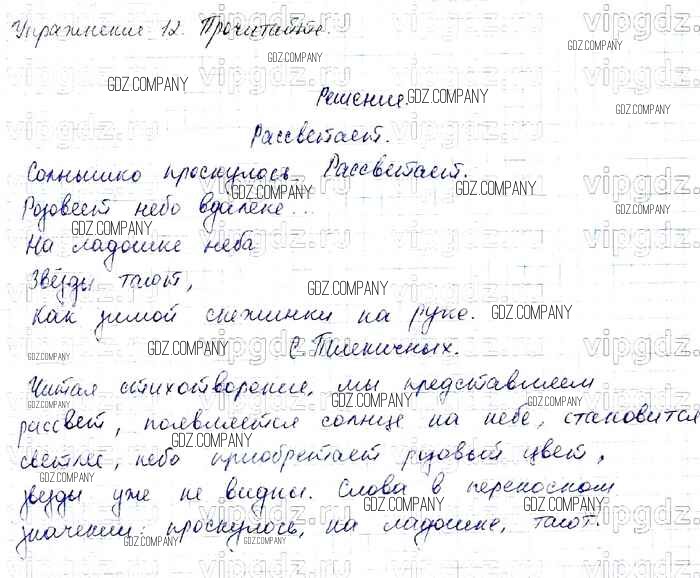 Упражнение 12. Прочитайте.
Решение.
Рассветает.
Солнышко проснулось. Рассветает.
Розовеет небо вдалеке...
На ладошке неба
Звёзды тают,
Как зимой снежинки на руке.
С. Пшеничных.
Читая стихотворение, мы представляем
рассвет, появляется солнце на небе, становится
светлее, небо приобретает розовый цвет,
звезды уже не видны. Слова в переносном
значении: проснулось, на ладошке, тают.
GDZ.COMPANY
vipgdz.ru